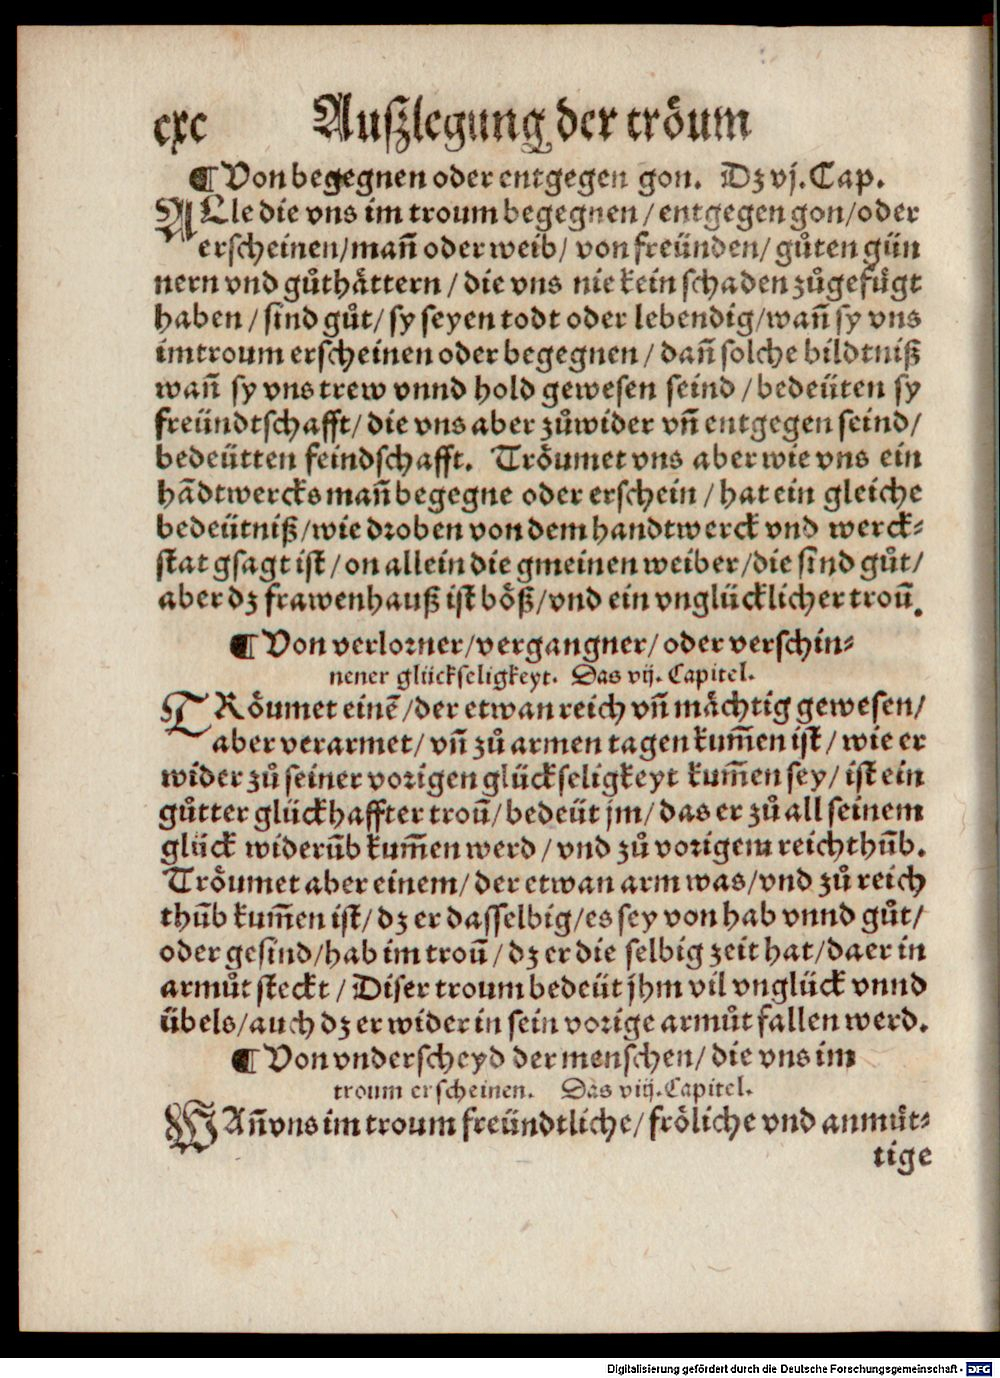 cxc Außlegung der tröum
¶ Von begegnen oder entgegen gon. Dz vj. Cap.
ALle die vns im troum begegnen / entgegen gon/oder
erscheinen/mañ oder weib/ von freünden/ gůten gün
nern vnd gůthättern / die vns nie kein schaden zůgefügt
haben / sind gůt/ sy seyen todt oder lebendig/wañ sy vns
im troum erscheinen oder begegnen / dañ solche bildtniß
wañ sy vns trew vnnd hold gewesen seind / bedeüten sy
freündtschafft/ die vns aber zůwider vñ entgegen seind/
bedeütten feindschafft. Tröumet vns aber wie vns ein
hãdtwercksmañ begegne oder erschein / hat ein gleiche
bedeütniß/wie droben von dem handtwerck vnd werck⸗
stat gsagt ist / on allein die gmeinen weiber/die sind gůt/
aber dz frawenhauß ist böß/vnd ein vnglücklicher troũ.
¶ Von verlorner/vergangner/ oder verschin⸗
nener glückseligkeyt. Das vij. Capitel.
TRöumet einẽ /der etwan reich vñ mächtig gewesen/
aber verarmet/ vñ zů armen tagen kum̃en ist / wie er
wider zů seiner vorigen glückseligkeyt kum̃en sey/ ist ein
gůtter glückhaffter troũ/ bedeüt jm/ das er zů all seinem
glück widerũb kum̃en werd / vnd zů vorigem reichthũb.
Tröumet aber einem/ der etwan arm was/vnd zů reich
thũb kum̃en ist/ dz er dasselbig/es sey von hab vnnd gůt/
oder gesind/hab im troũ / dz er die selbig zeit hat/da er in
armůt steckt / Diser troum bedeüt jhm vil vnglück vnnd
übels/auch dz er wider in sein vorige armůt fallen werd.
¶ Von vnderscheyd der menschen/ die vns im
troum erscheinen. Das viij. Capitel.
WAñ vns im troum freündtliche/ fröliche vnd anmůt⸗
tige
Digitalisierung gefördert durch die Deutsche Forschungsgemeinschaft - DFG